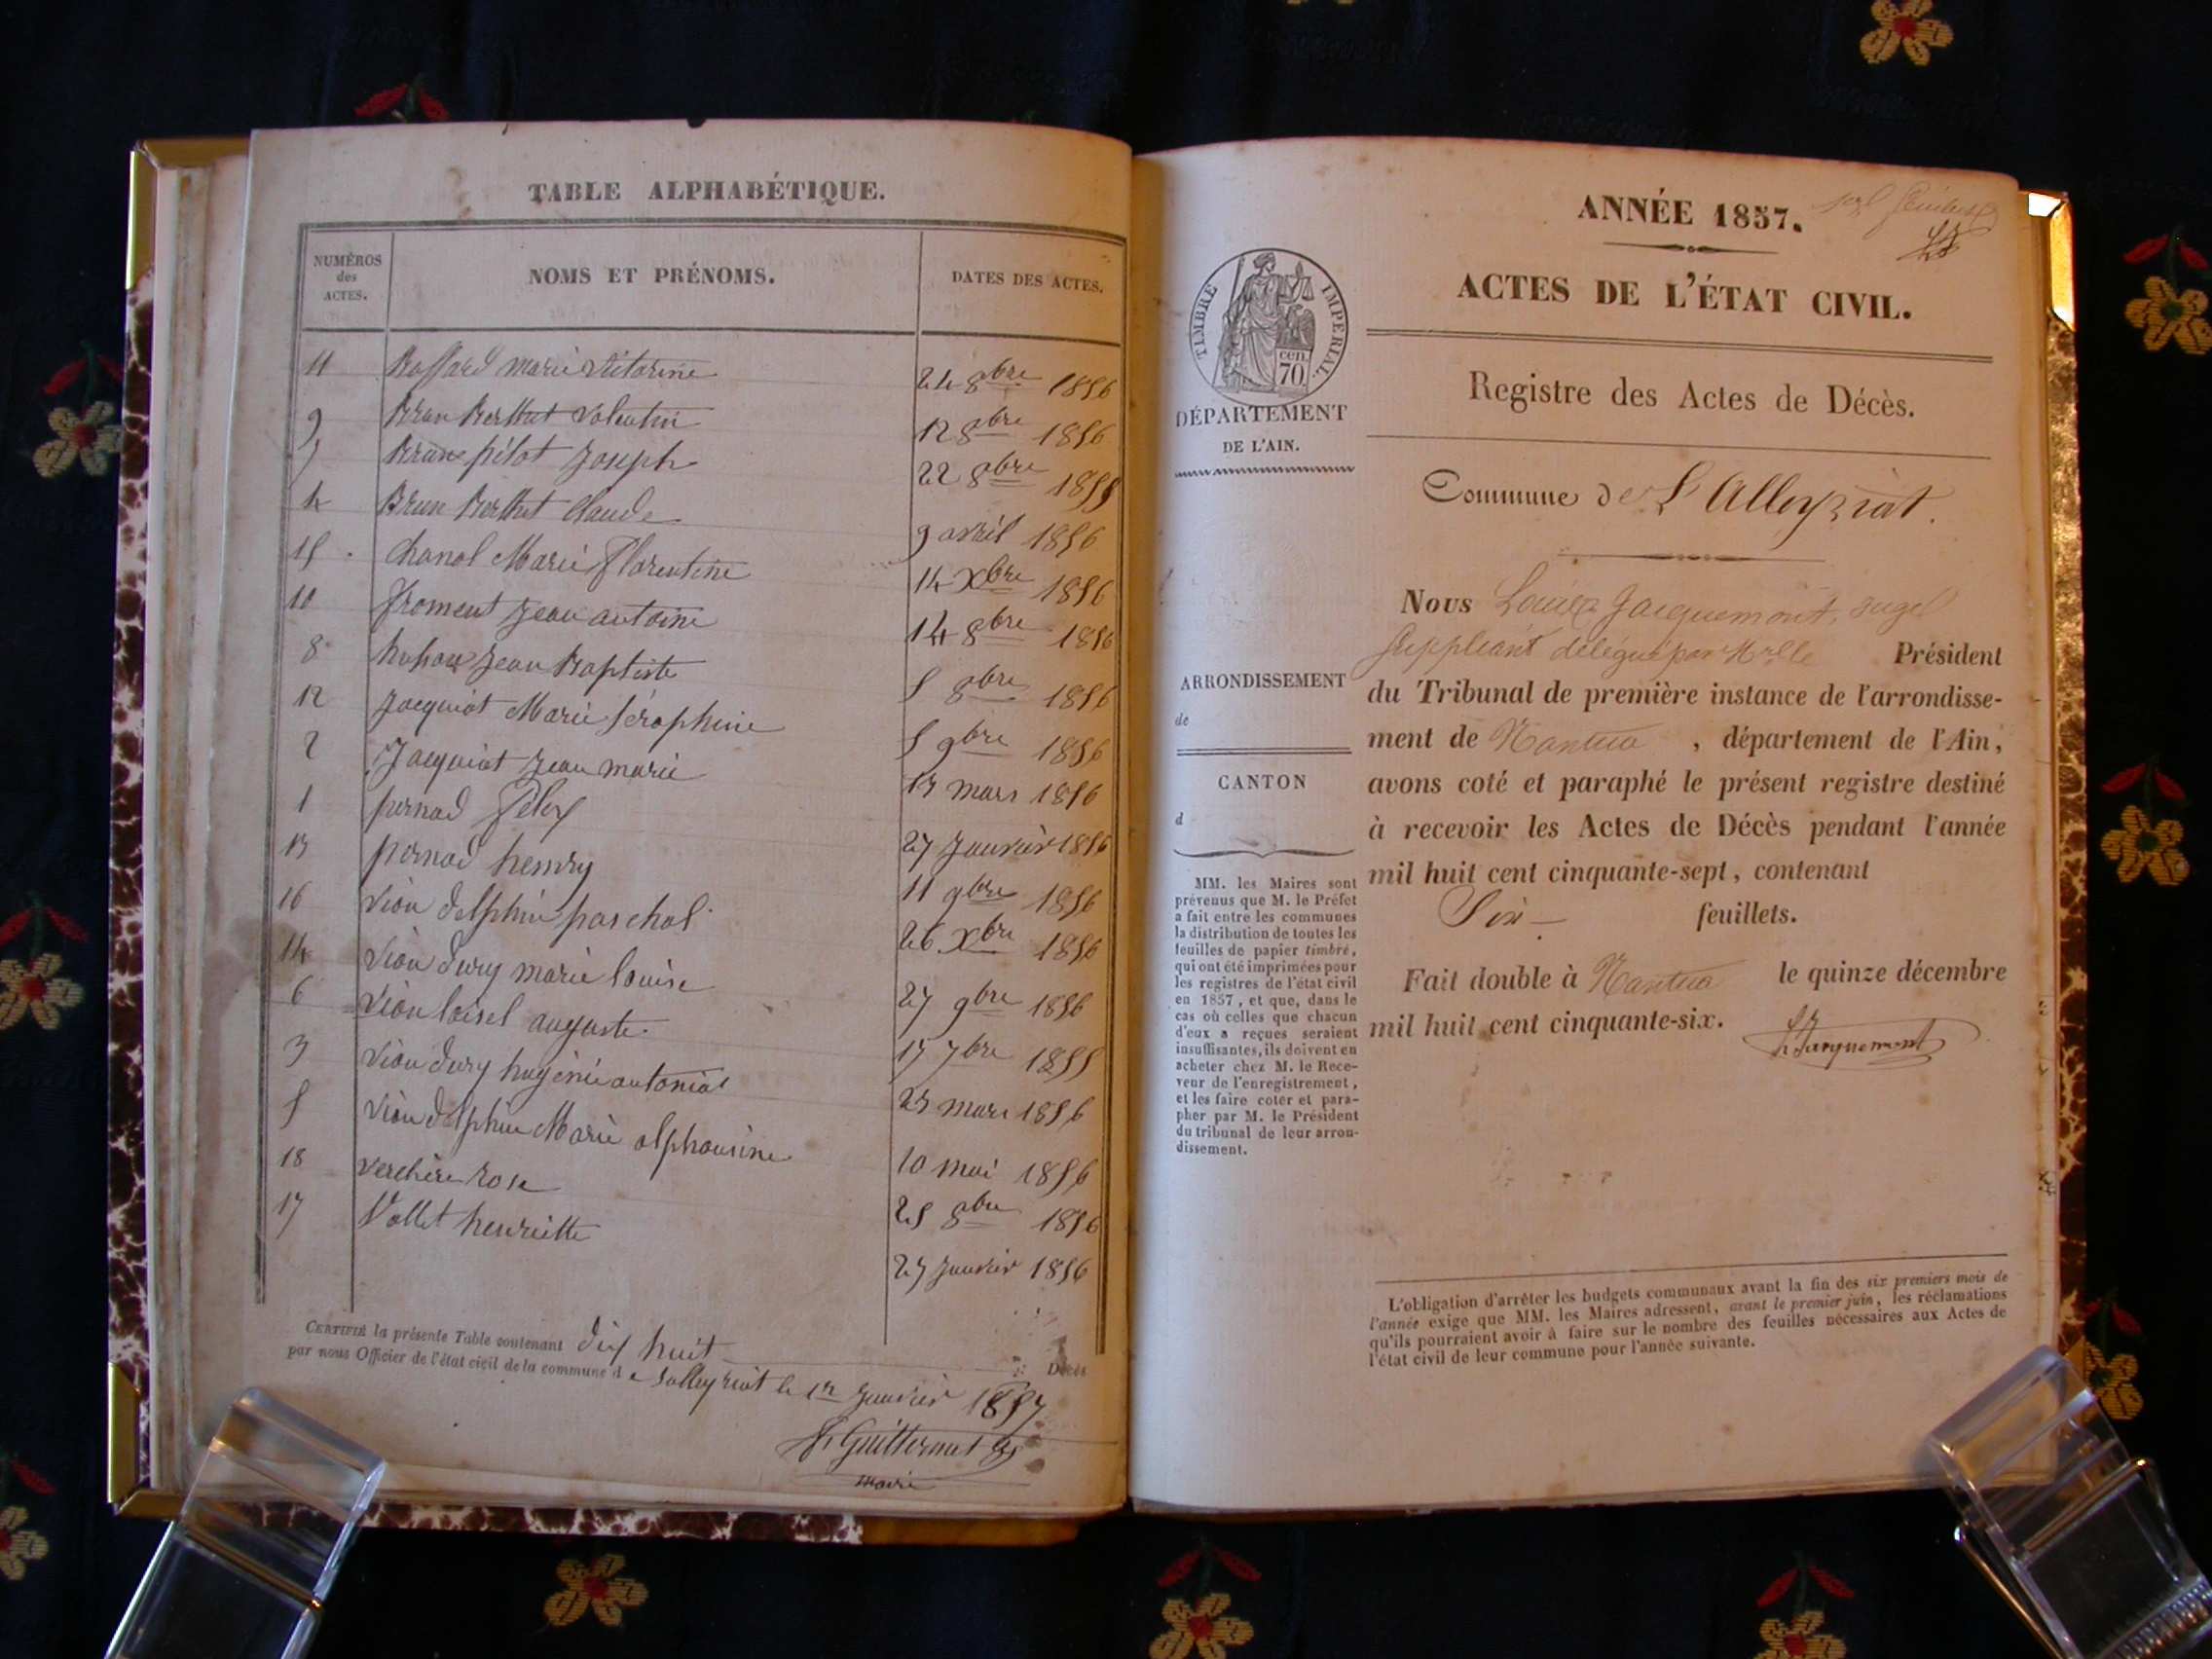 TABLE ALPHABÉTIQUE.
NUMÉROS des ACTES.
NOMS ET PRÉNOMS.
DATES DES ACTES.
11 Marie 24 8bre 1856
9 Brun Berthet Valentin 12 8bre 1856
Brun pilot Joseph 22 8bre 1855
4 Brun Berthet Claude 9 avril 1856
15 Chanal Marie Florentine 14 Xbre 1856
10 froment Jean antoine 14 8bre 1856
8 Jean Baptiste 5 8bre 1856
12 Jacquiot Marie Séraphine 5 9bre 1856
2 Jacquiot Jean marie 13 mars 1856
1 pernod felix 27 Janvier 1856
13 pernod henry 11 9bre 1856
16 Vion delphin paschal 26 Xbre 1856
14 Vion dury marie louise 27 9bre 1856
6 Vion loisel auguste 17 7bre 1855
3 Vion dury hugénie 23 mars 1856
5 Vion delphin Marie alphonsine 10 mai 1856
18 verchère rose 25 8bre 1856
17 Vollet henriette 27 Janvier 1856
CERTIFIÉ la présente Table contenant dix huit Décès
par nous Officier de l'état civil de la commune de Lalleyriat le 1er Janvier 1857
maire
ANNÉE 1857.
ACTES DE L'ÉTAT CIVIL.
TIMBRE IMPERIAL.
cen. 70
DÉPARTEMENT
DE L'AIN.
Registre des Actes de Décès.
Commune de L'Alleyriat.
ARRONDISSEMENT
de
CANTON
d
MM. les Maires sont
prévenus que M. le Préfet
a fait entre les communes
la distribution de toutes les
feuilles de papier timbré,
qui ont été imprimées pour
les registres de l'état civil
en 1857, et que, dans le
cas où celles que chacun
d'eux a reçues seraient
insuffisantes, ils doivent en
acheter chez M. le Rece-
veur de l'enregistrement,
et les faire coter et para-
pher par M. le Président
du tribunal de leur arron-
dissement.
Nous Jacquemont, juge
Suppléant délégué par Président
du Tribunal de première instance de l'arrondisse-
ment de Nantua, département de l'Ain,
avons coté et paraphé le présent registre destiné
à recevoir les Actes de Décès pendant l'année
mil huit cent cinquante-sept, contenant
Six feuillets.
Fait double à Nantua le quinze décembre
mil huit cent cinquante-six.
Jacquemont
L'obligation d'arrêter les budgets communaux avant la fin des six premiers mois de
l'année exige que MM. les Maires adressent, avant le premier juin, les réclamations
qu'ils pourraient avoir à faire sur le nombre des feuilles nécessaires aux Actes de
l'état civil de leur commune pour l'année suivante.